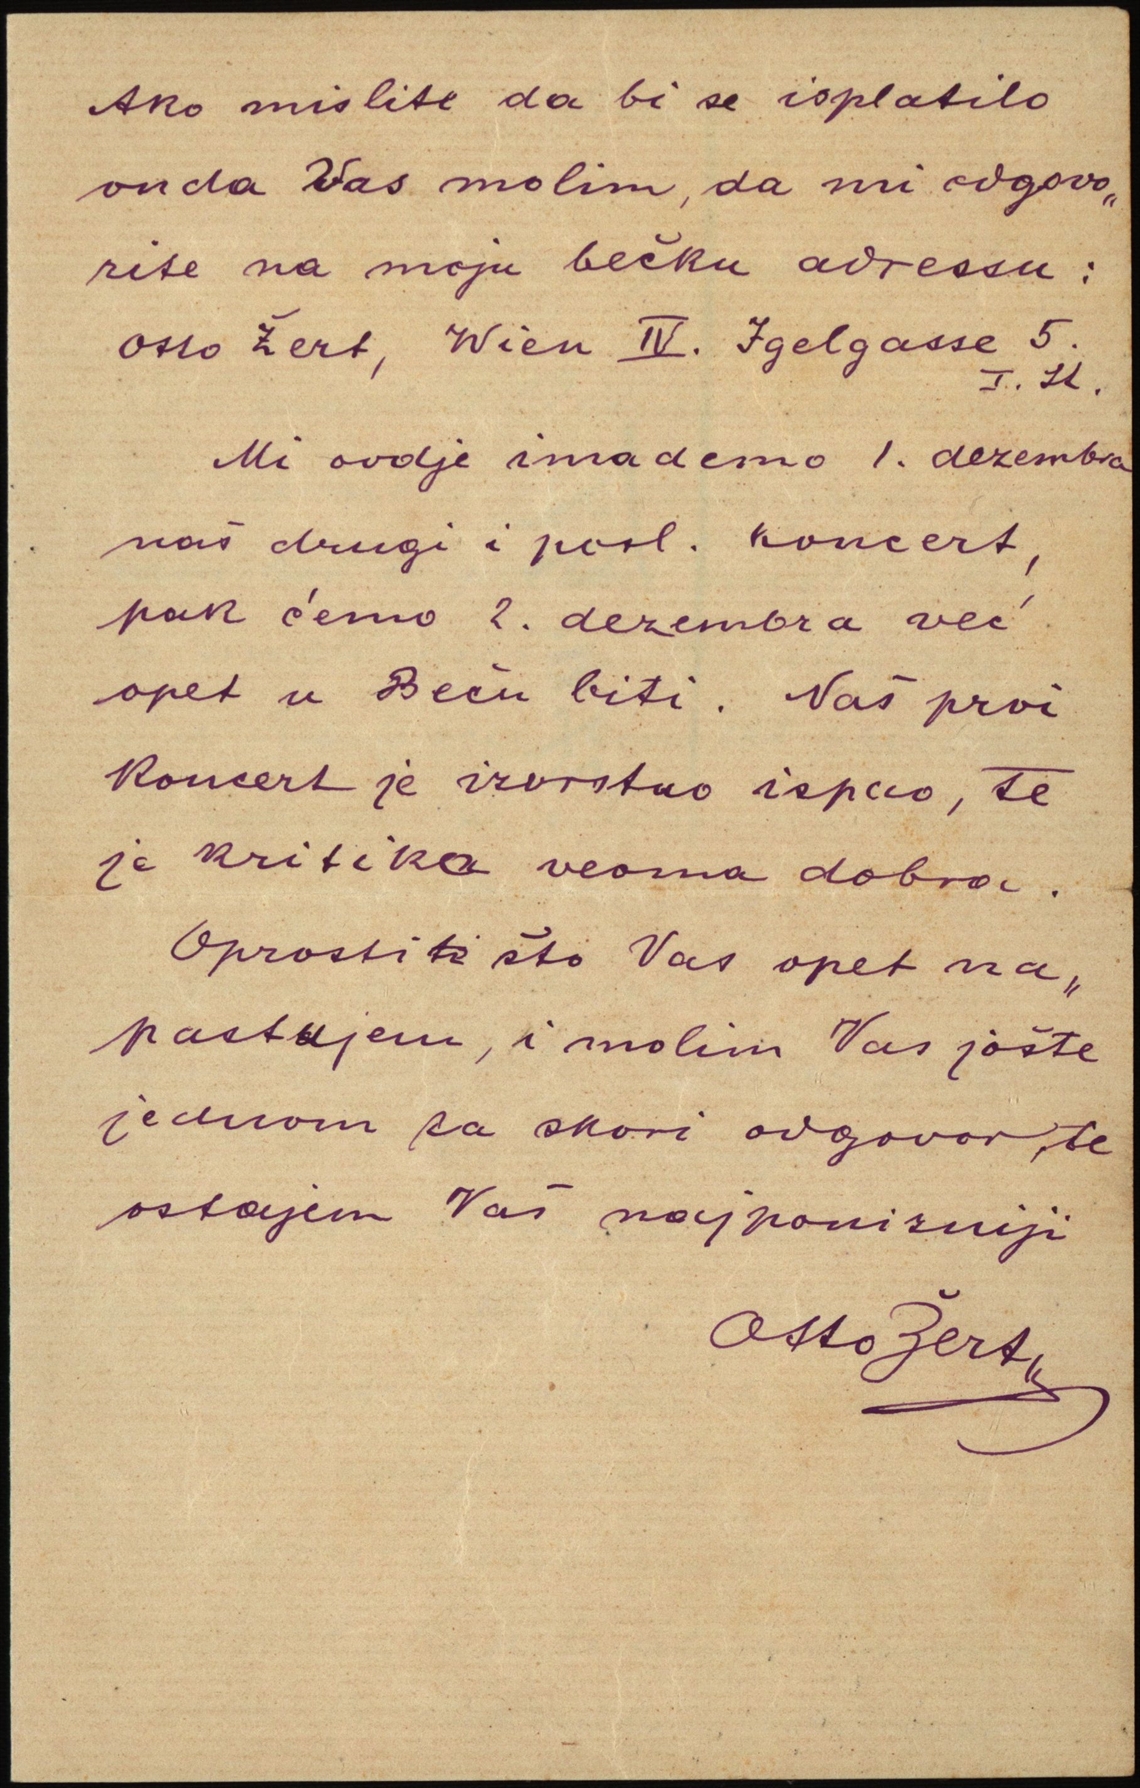 Ako mislite da bi se isplatilo
onda Vas molim, da mi odgovo„
rite na moju bečku adressu:
Otto Žert, Wien IV. Igelgasse 5.
I. St.
Mi ovdje imademo 1. dezembra
naš drugi i posl. koncert,
pak ćemo 2. dezembra već
opet u Beču biti. Naš prvi
Koncert je izvrstno ispao, te
je kritika veoma dobra.
Oprostite što Vas opet na„
pastujem, i molim Vas jošte
jednom za skori odgovor, te
ostajem Vaš najponizniji
Otto Žert